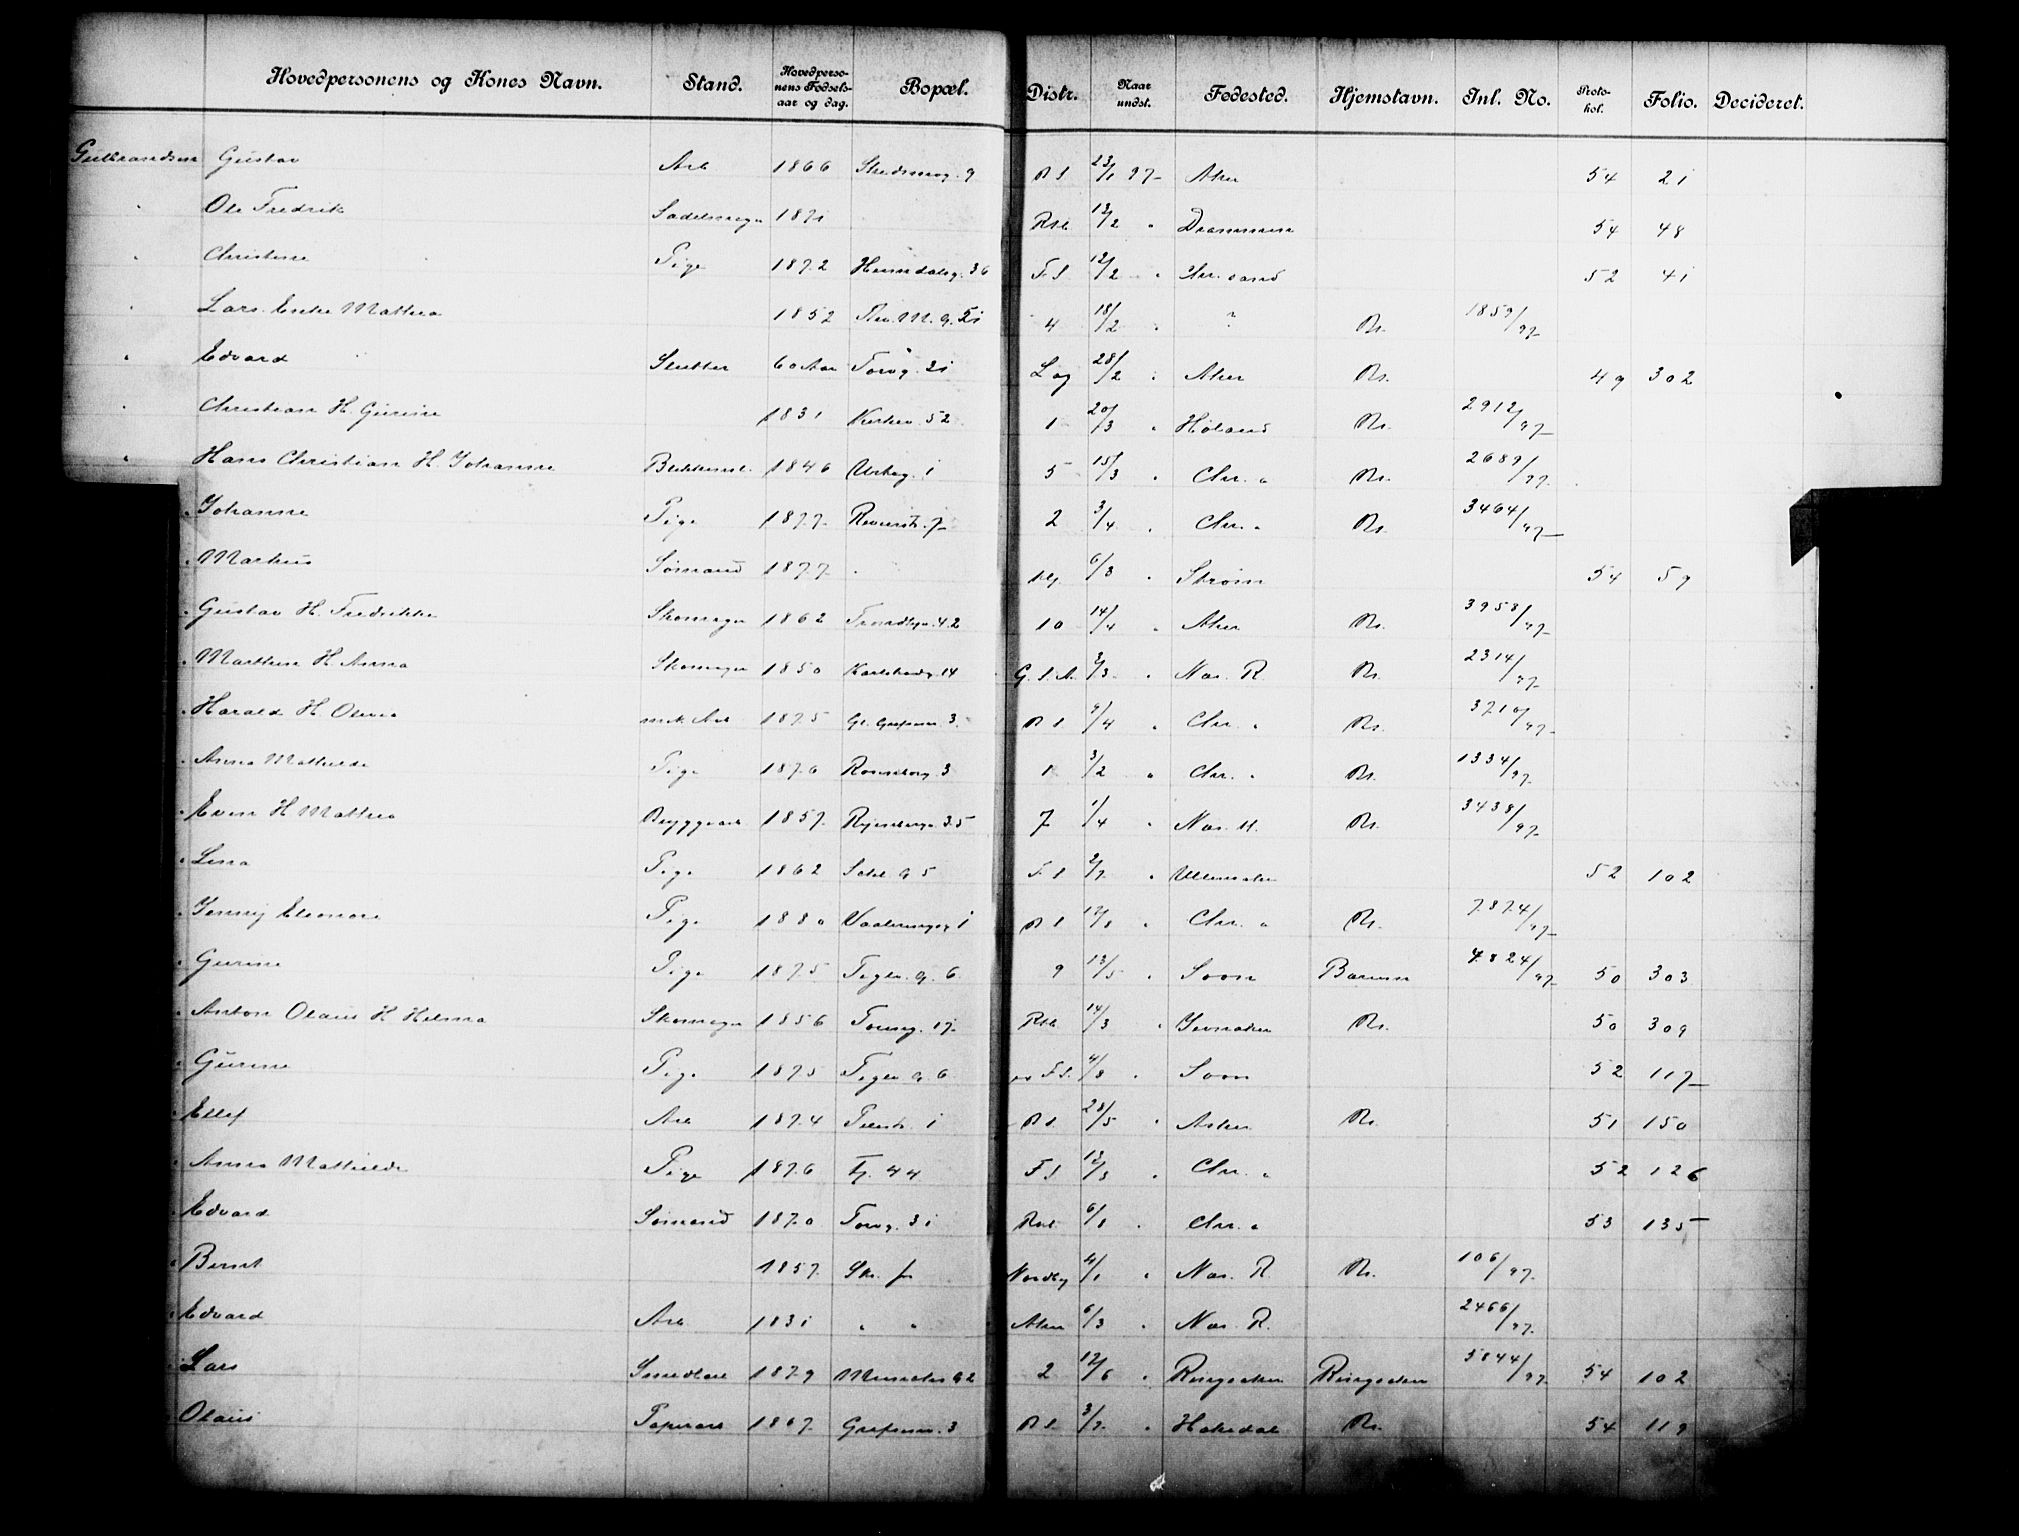 Hovedpersonens og Kones Navn. Stand. Hovedpersonens Fødselsaar og dag. Bopæl. Distr. Naar undst. Fødested. Hjemstavn. Inl. No. Protokol. Folio. Decideret.
Gulbrandsen Gustav Arb 1866 9 23/1 97 Aker 54 21
" Ole Fredrik Sadelmager 1871 12/2 " Drammen 54 48
" Christine Pige 1872 36 F. S. 12/2 " Chr.sand 52 41
" Lars Enke Mathea 1852 Thv. M. G. 21 4 18/2 " ? Br. 1859/97
" Edvard Slutter 60 Aar Torvg. 31 Lag 28/2 " Aker Br. 49 302
" Christian H. Gurine 1831 Kirkev. 52 1 20/3 " Høland Br. 2912/97
" Hans Christian H. Johanne 1846 Urteg. 1 5 15/3 " Chr. a Br. 2689/97
" Johanne Pige 1877 Revierst. 7 2 3/4 " Chr. a Br. 3464/97
" Markus Sømand 1877 " 6/3 " Strøm 54 59
" Gustav H. Fredrikke Skomager 1862 42 10 14/4 " Aker Br. 3958/97
" Marthin H. Anna Skomager 1850 Karlstadg. 14 G. S. A. 2/3 " Nas. R. Br. 2314/97
" Harald H. Olivia mek Arb 1875 Gl. Grefsenv. 3 9/4 " Chr. a Br. 3710/97
" Anna Mathilde Pige 1876 Rosenborg. 3 1 3/2 " Chr. a Br. 1334/97
" Even H. Mathea Bryggearb 1857 35 7 1/4 " Nas. H. Br. 3438/97
" Lina Pige 1862 G 5 F. S 2/7 " Ullensaker 52 102
" Jenny Eleonore Pige 1880 Vaalerengg. 1 12/8 " Chr. a Br. 7874/97
" Gurine Pige 1875 Teglv. G. 6 9 13/5 " Soon Bærum 4824/97 50 303
" Anton Olaus H. Hilma Skomager 1856 Torvg. 17 14/3 " Jevnaker Br. 50 309
" Gurine Pige 1875 Teglv. G. 6 F. S. 4/8 " Soon 52 117
" Ellef Arb 1874 Pilestr. 1 28/5 " Asker Br. 51 150
" Anna Mathilde Pige 1876 44 F S 12/8 " Chr. a 52 126
" Edvard Sømand 1870 Torvg. 31 6/8 " Chr. a 53 135
" Bernt 1857 Nordby 4/1 " Nas. R. Br. 106/97
" Edvard Arb 1831 " " Aker 6/3 " Nas. R. 2466/97
" Lars Smedlær 1879 2 12/6 " Ringsaker Ringsaker 5844/97 54 102
" Olaus Papirarb 1867 Grefsenv. 3 3/7 " Hakedal Br. 54 119